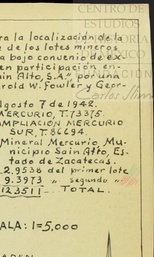 CENTRO DE
ESTUDIOS
ra la localización de la
e de los lotes mineros
a bajo convenio de ex
en participación en-
ain Alto, S.A.", por una
arold W. Fowler y Geor-
gosto 7 de 1942.
MERCURIO, T.73375.
AMPLIACION MERCURIO
SUR, T.86694.
Mineral Mercurio, Mu-
nicipio Sain Alto, Es-
tado de Zacatecas.
2,9538 del primer lote
9.3973 " segundo "
123511 - TOTAL.
ALA: 1=5,000